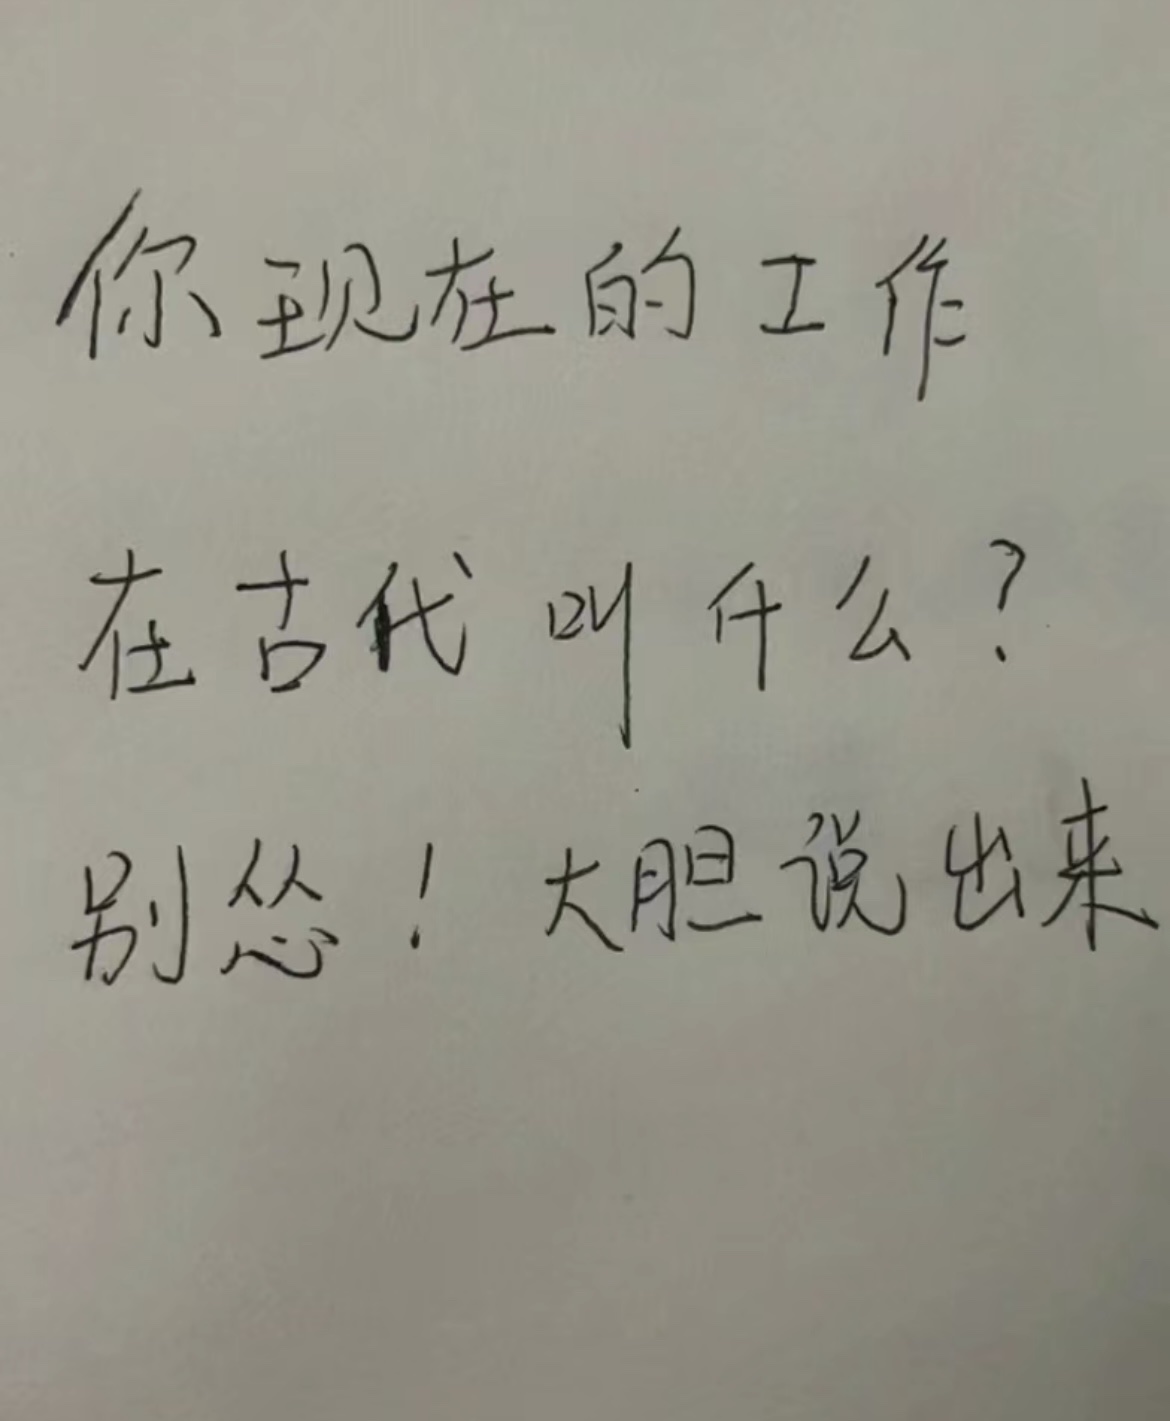 你现在的工作
在古代叫什么?
别怂!大胆说出来